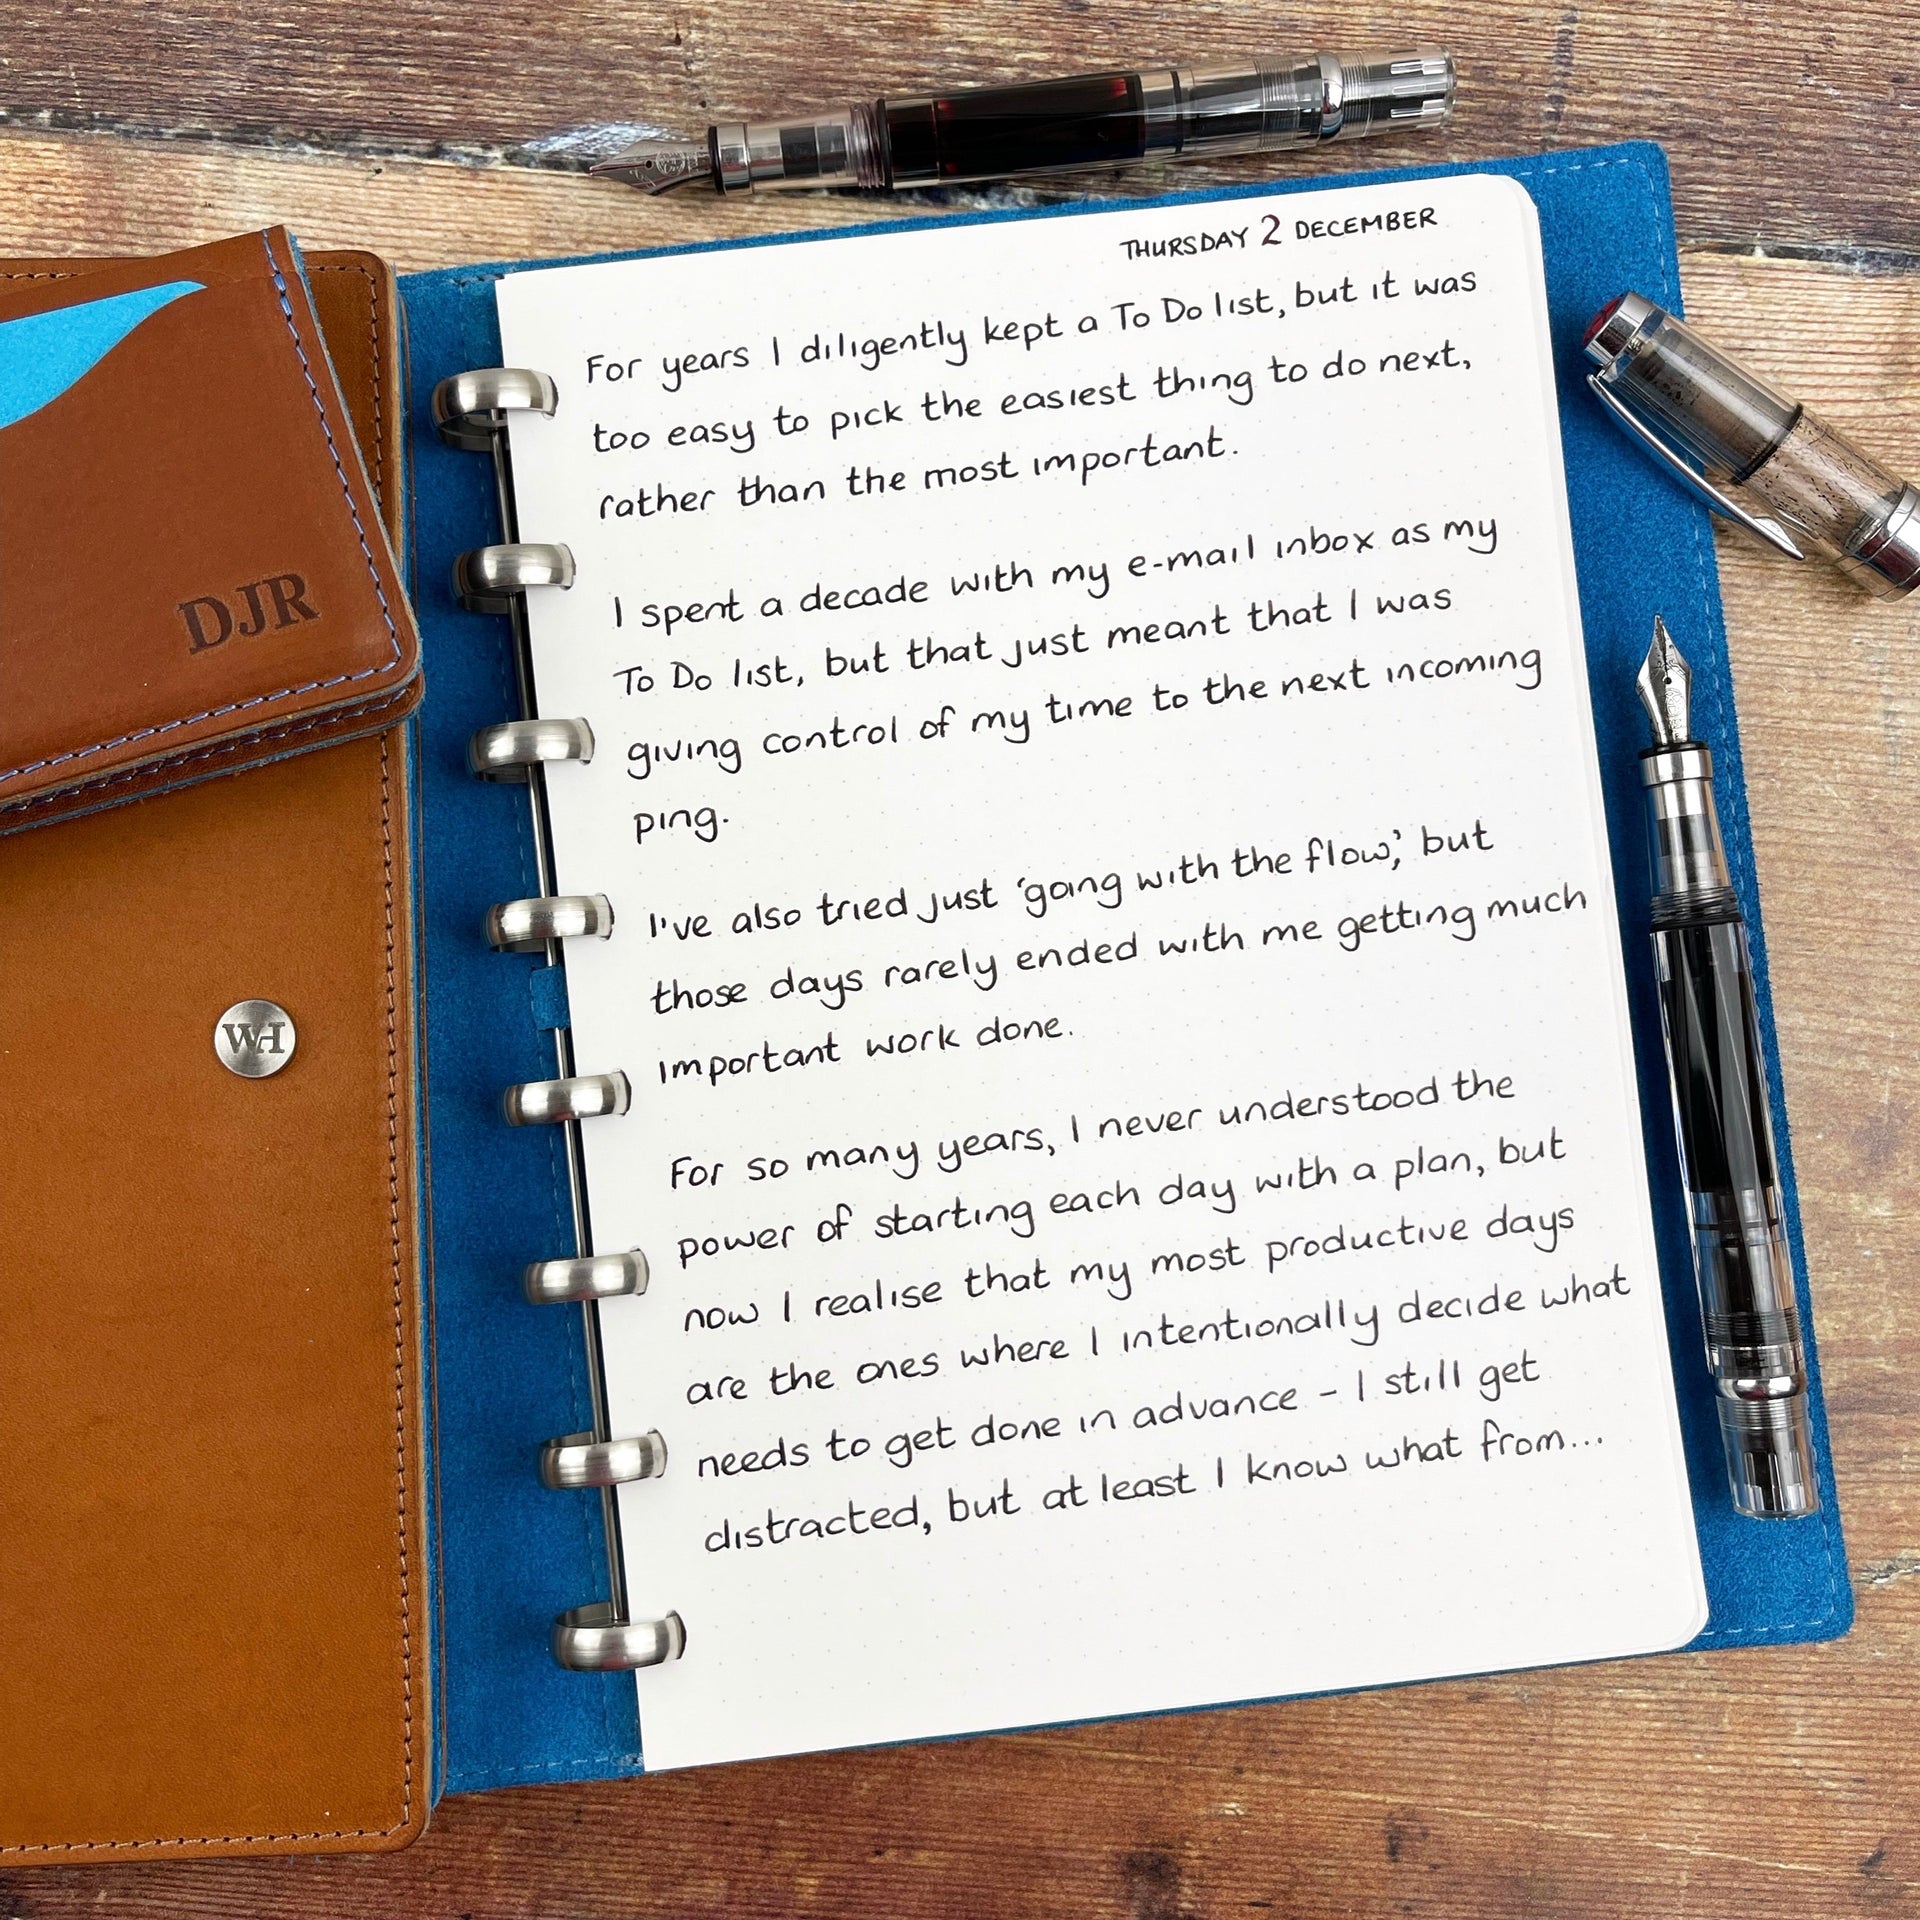 THURSDAY 2 DECEMBER
For years I diligently kept a To Do list, but it was
too easy to pick the easiest thing to do next,
rather than the most important.
I spent a decade with my e-mail inbox as my
To Do list, but that just meant that I was
giving control of my time to the next incoming
ping.
I've also tried just 'going with the flow', but
those days rarely ended with me getting much
important work done.
For so many years, I never understood the
power of starting each day with a plan, but
now I realise that my most productive days
are the ones where I intentionally decide what
needs to get done in advance – I still get
distracted, but at least I know what from...
DJR
WH